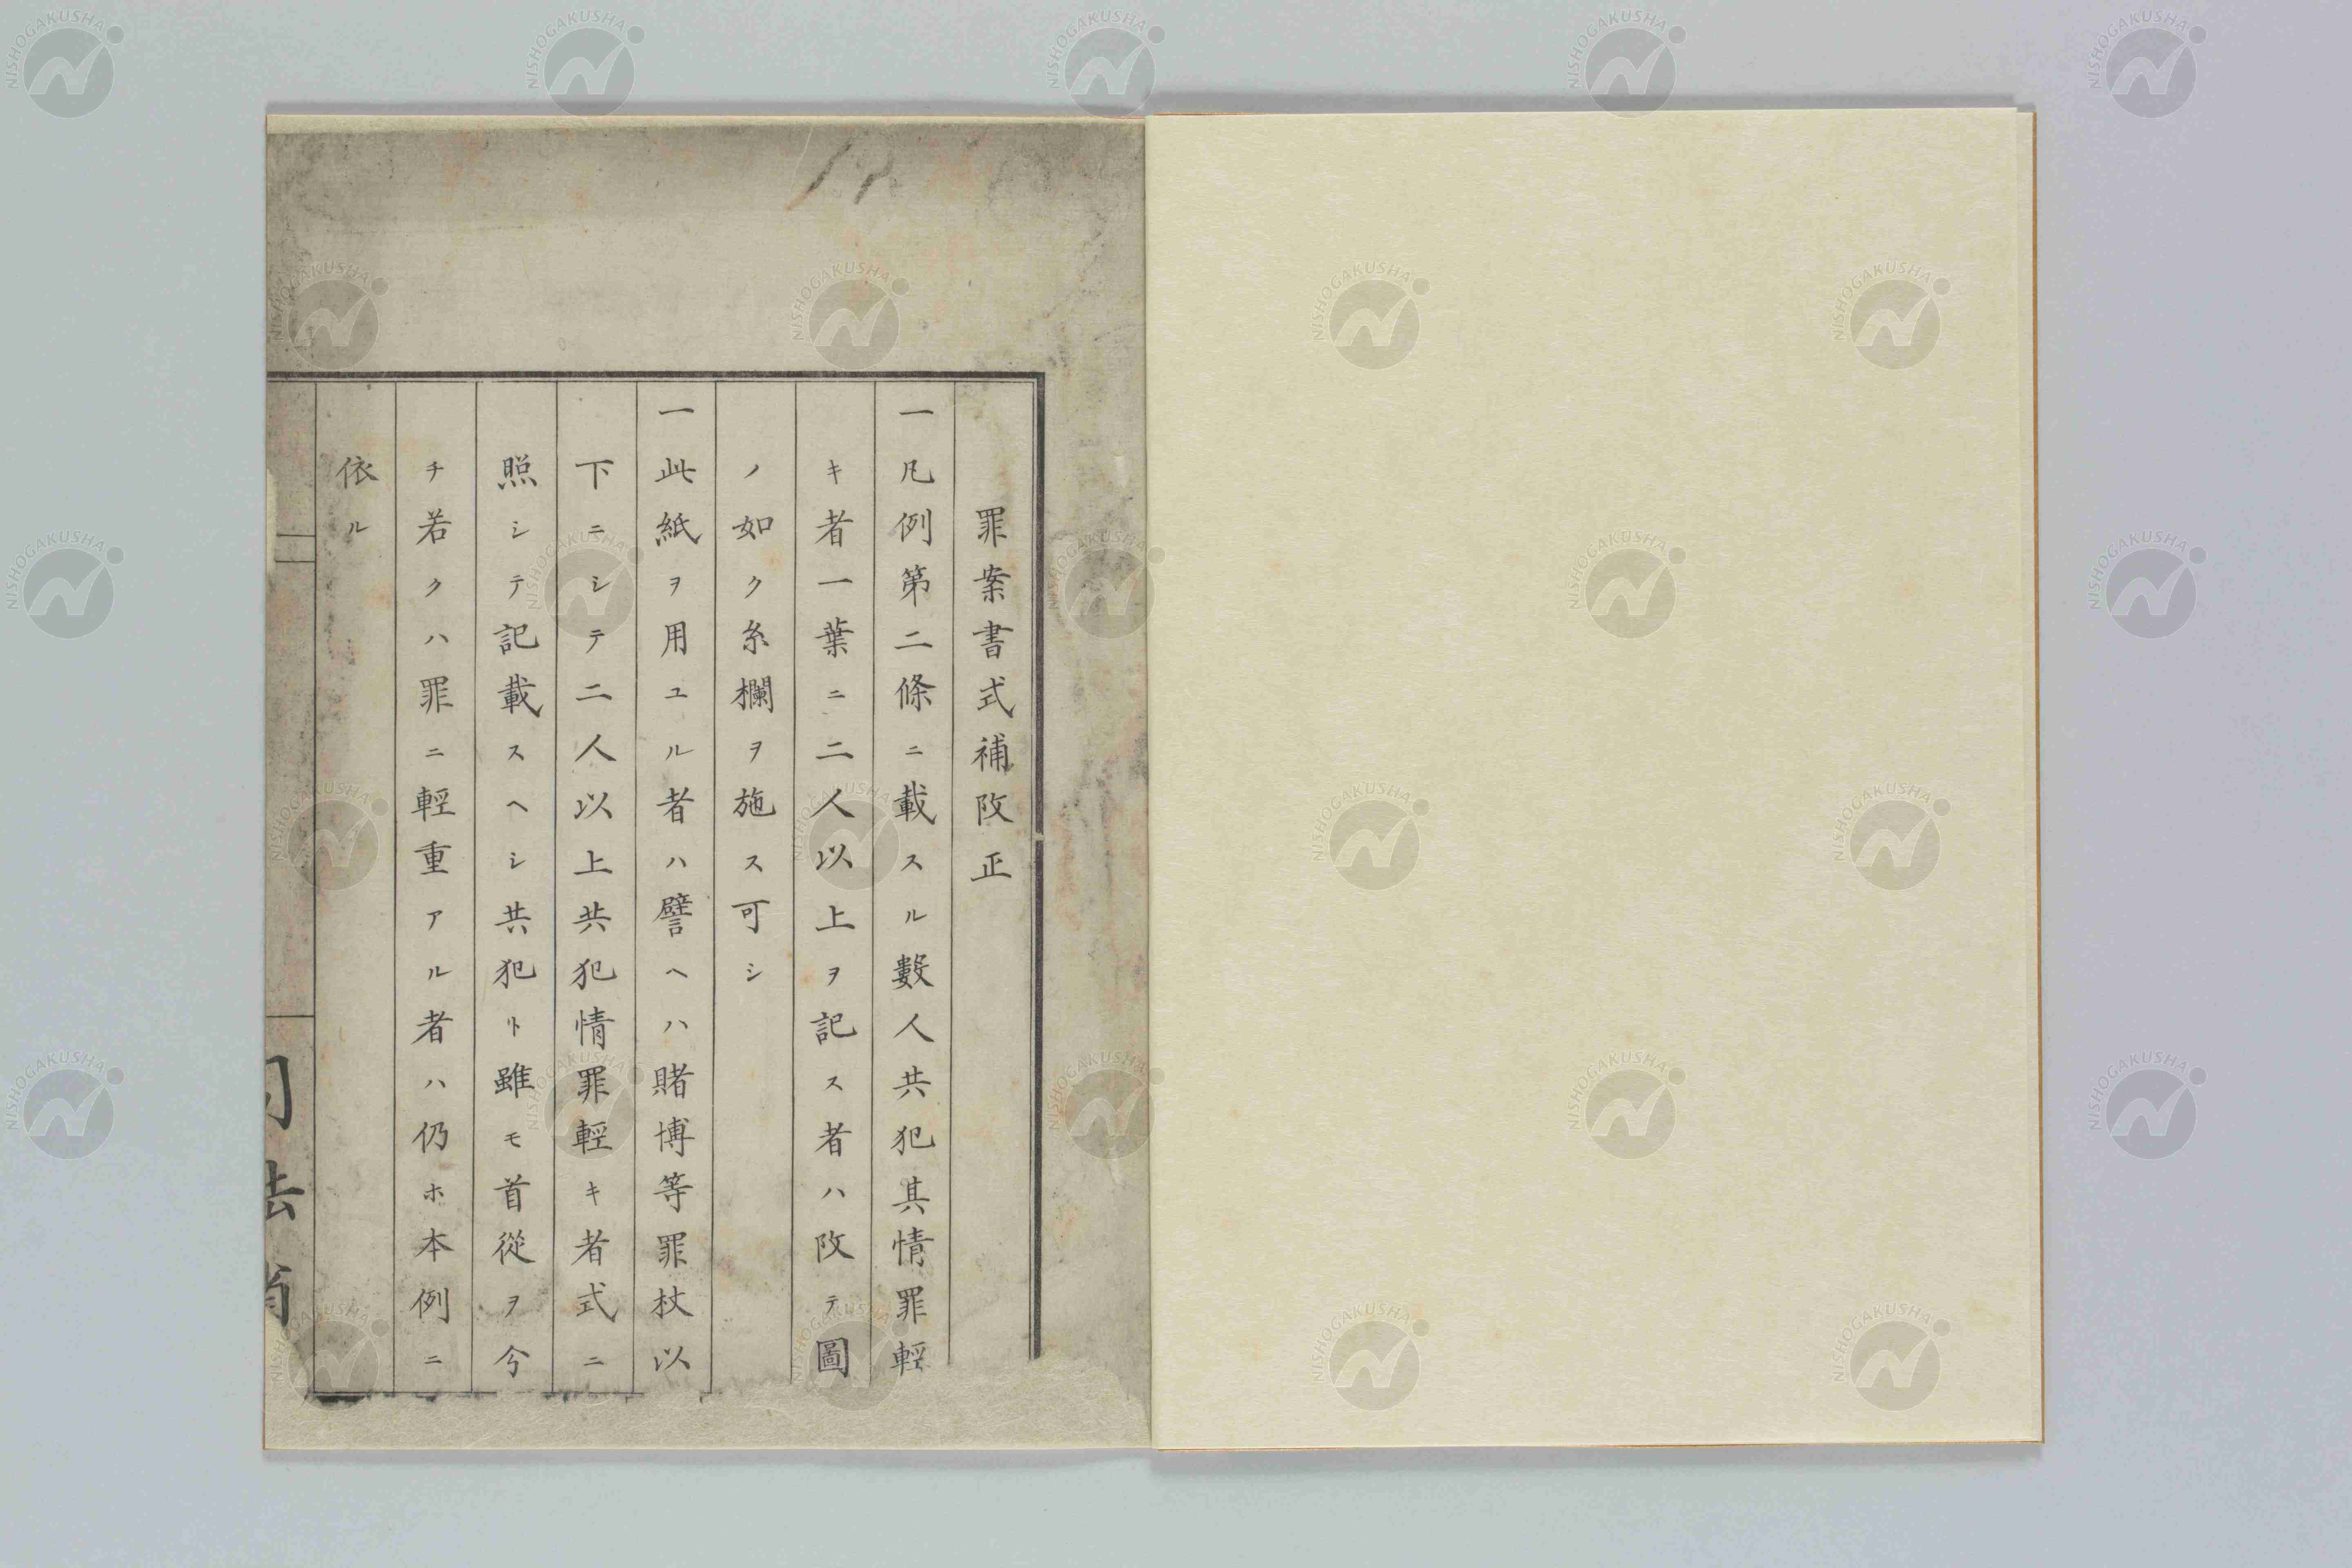 罪案書式補改正
一凡例第二條ニ載スル數人共犯其情罪輕
キ者一葉ニ二人以上ヲ記ス者ハ改テ圖
ノ如ク糸欄ヲ施ス可シ
一此紙ヲ用ユル者ハ譬ヘハ賭博等罪杖以
下ニシテ二人以上共犯情罪輕キ者式ニ
照シテ記載スヘシ共犯ト雖モ首從ヲ今
チ若クハ罪ニ輕重アル者ハ仍ホ本例ニ
依ル
司法省
NISHOGAKUSHA